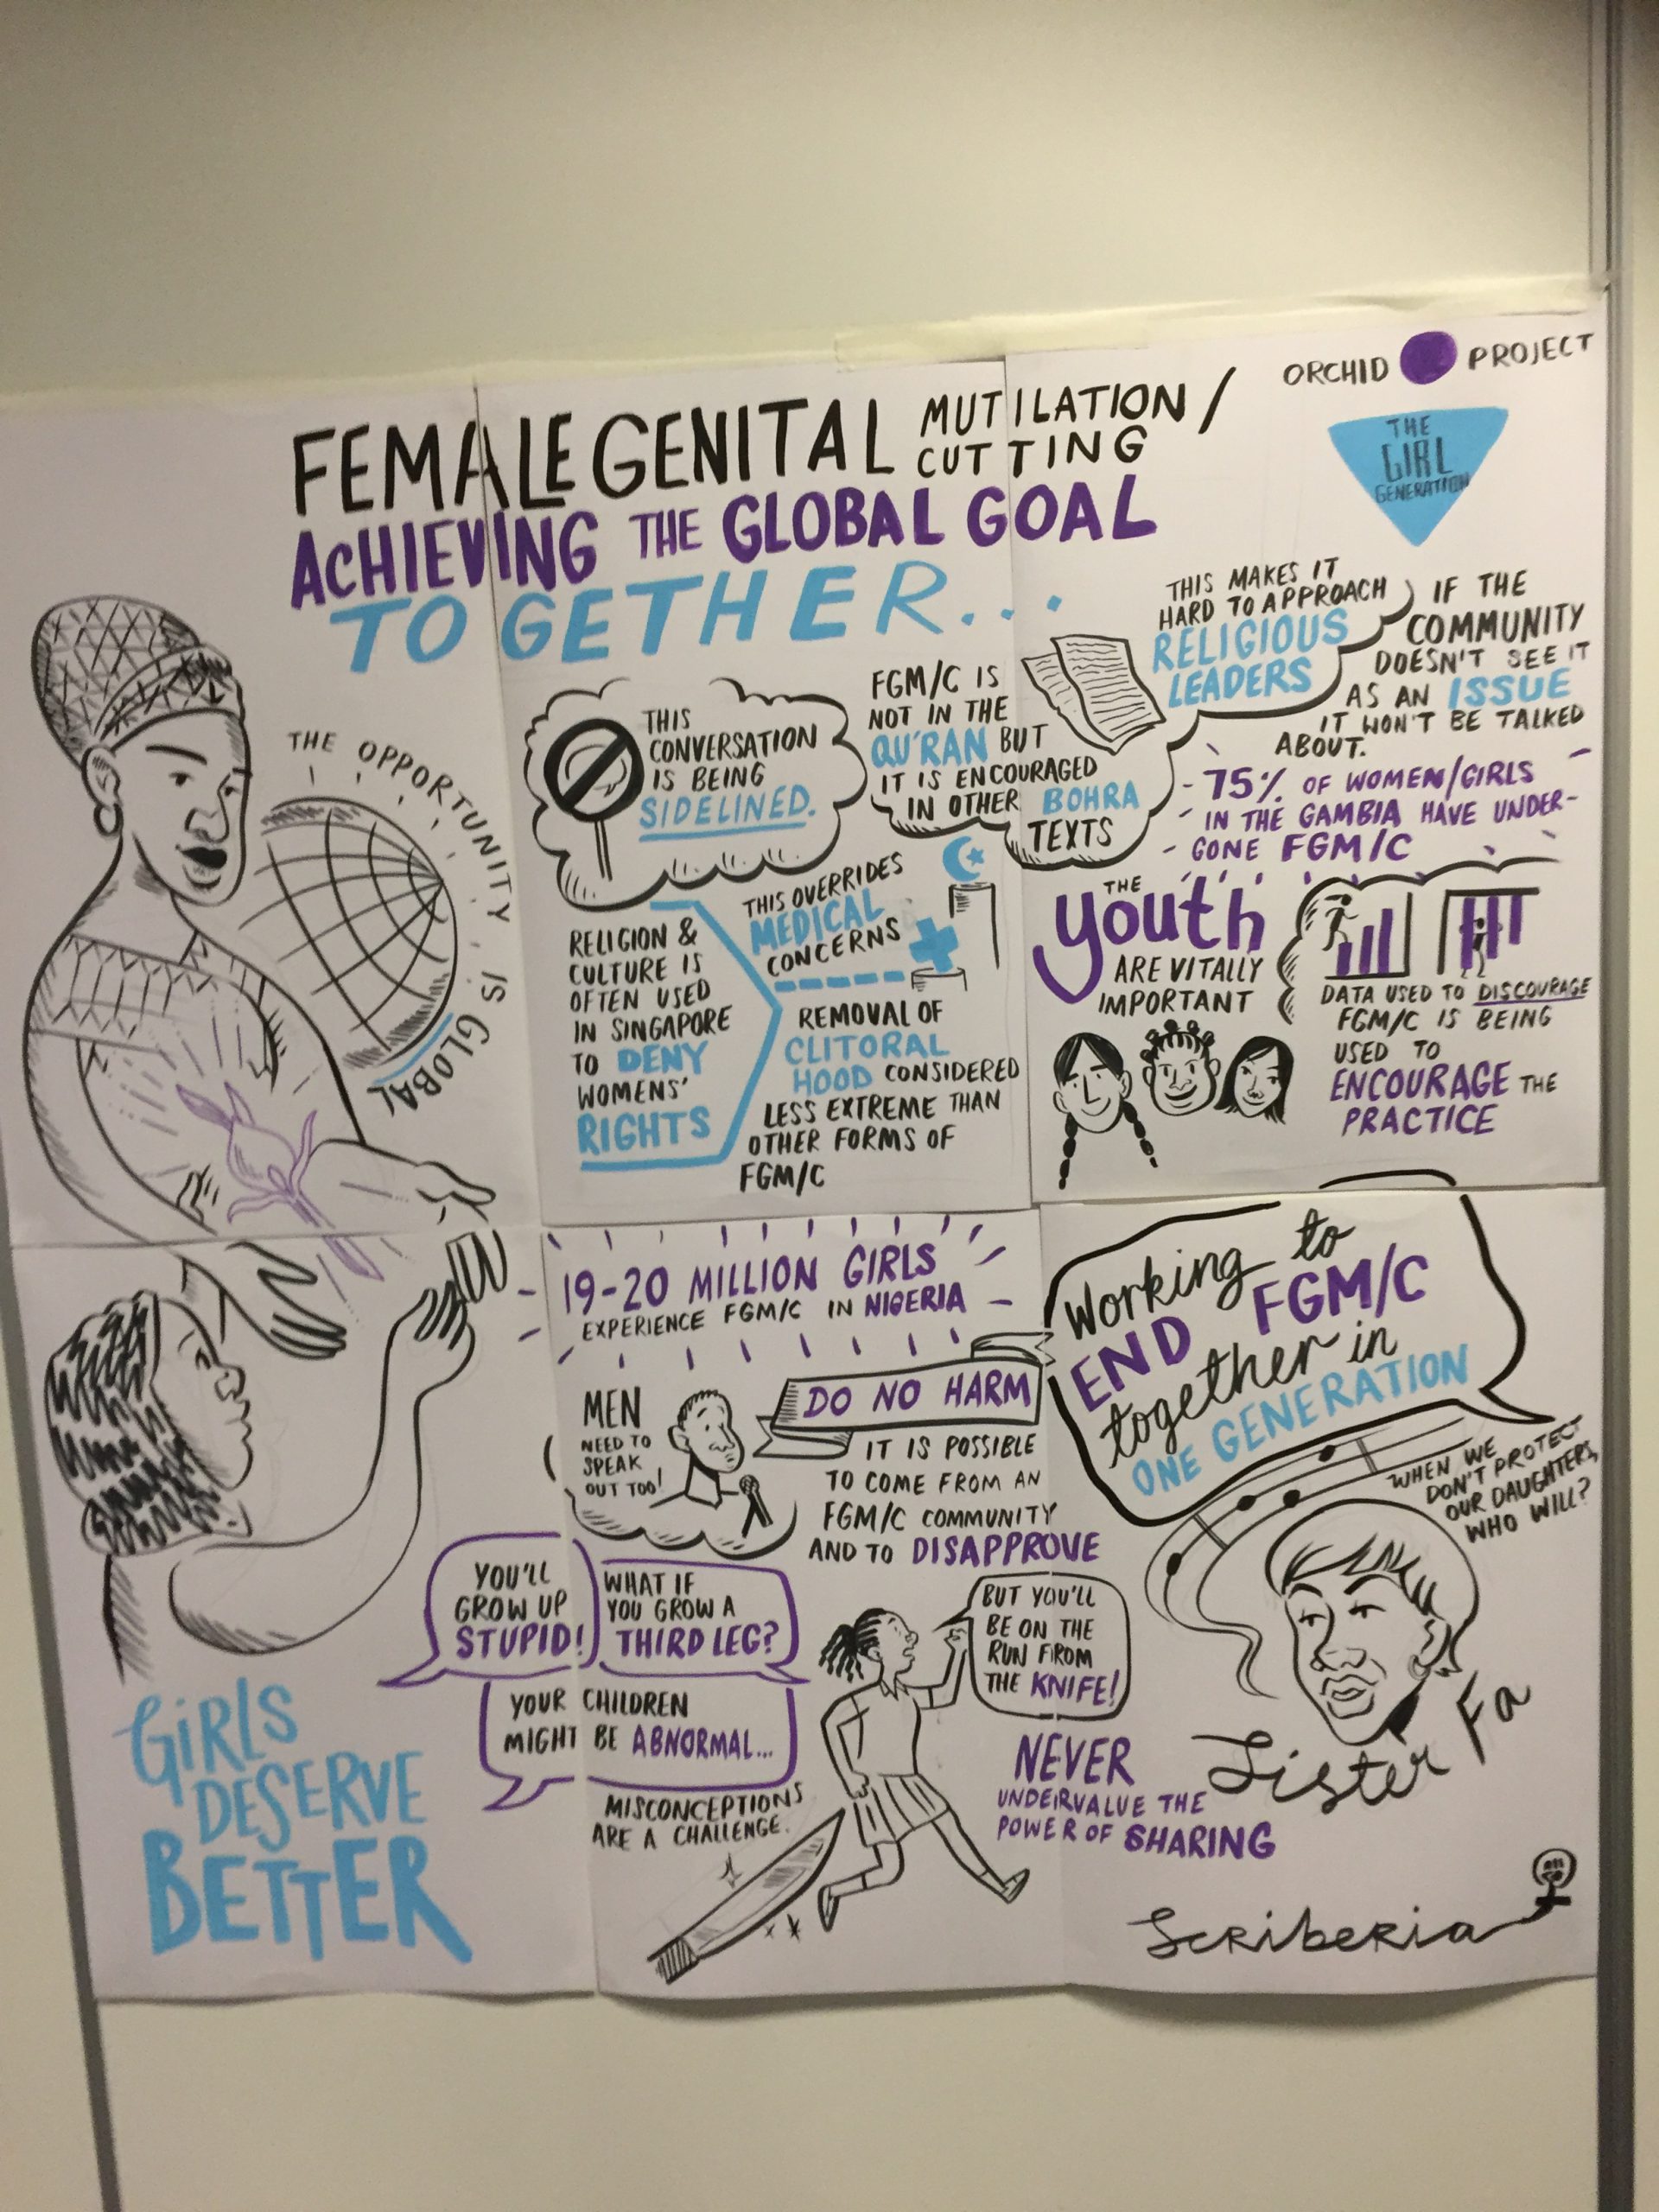 ORCHID PROJECT
THE
GIRL
GENERATION
FEMALE GENITAL MUTILATION/
CUTTING
ACHIEVING THE GLOBAL GOAL
TOGETHER...
THE OPPORTUNITY IS GLOBAL
THIS
CONVERSATION
IS BEING
SIDELINED.
FGM/C IS
NOT IN THE
QU'RAN BUT
IT IS ENCOURAGED
IN OTHER BOHRA
TEXTS
THIS MAKES IT
HARD TO APPROACH
RELIGIOUS
LEADERS
IF THE
COMMUNITY
DOESN'T SEE IT
AS AN ISSUE
IT WON'T BE TALKED
ABOUT.
75% OF WOMEN/GIRLS
IN THE GAMBIA HAVE UNDER-
GONE FGM/C
RELIGION &
CULTURE IS
OFTEN USED
IN SINGAPORE
TO DENY
WOMENS'
RIGHTS
THIS OVERRIDES
MEDICAL
CONCERNS
REMOVAL OF
CLITORAL
HOOD CONSIDERED
LESS EXTREME THAN
OTHER FORMS OF
FGM/C
THE
YOUTH
ARE VITALLY
IMPORTANT
DATA USED TO DISCOURAGE
FGM/C IS BEING
USED TO
ENCOURAGE THE
PRACTICE
19-20 MILLION GIRLS
EXPERIENCE FGM/C IN NIGERIA
MEN
NEED TO
SPEAK
OUT TOO!
DO NO HARM
IT IS POSSIBLE
TO COME FROM AN
FGM/C COMMUNITY
AND TO DISAPPROVE
Working to
END FGM/C
together in
ONE GENERATION
WHEN WE
DON'T PROTECT
OUR DAUGHTERS,
WHO WILL?
Sister Fa
YOU'LL
GROW UP
STUPID!
WHAT IF
YOU GROW A
THIRD LEG?
YOUR CHILDREN
MIGHT BE ABNORMAL...
MISCONCEPTIONS
ARE A CHALLENGE.
BUT YOU'LL
BE ON THE
RUN FROM
THE KNIFE!
NEVER
UNDERVALUE THE
POWER OF SHARING
GIRLS
DESERVE
BETTER
Scriberia